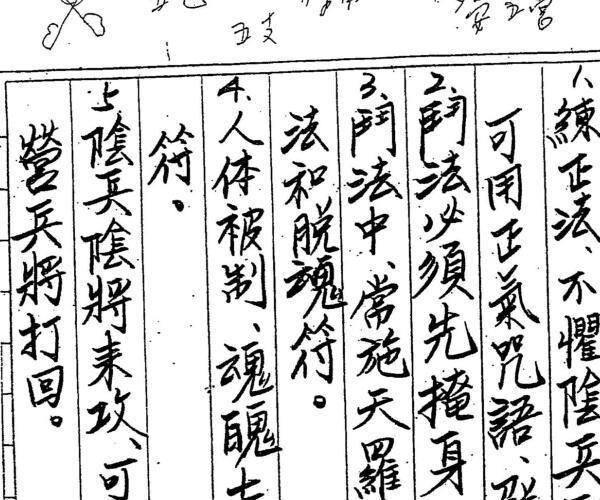 安五營
五支
1、練正法、不懼陰兵
可用正氣咒語、
2、鬥法必須先掩身
3、鬥法中、常施天羅
法和脫魂符。
4、人体被制、魂魄七
符。
5、陰兵陰將來攻、可
營兵將打回。